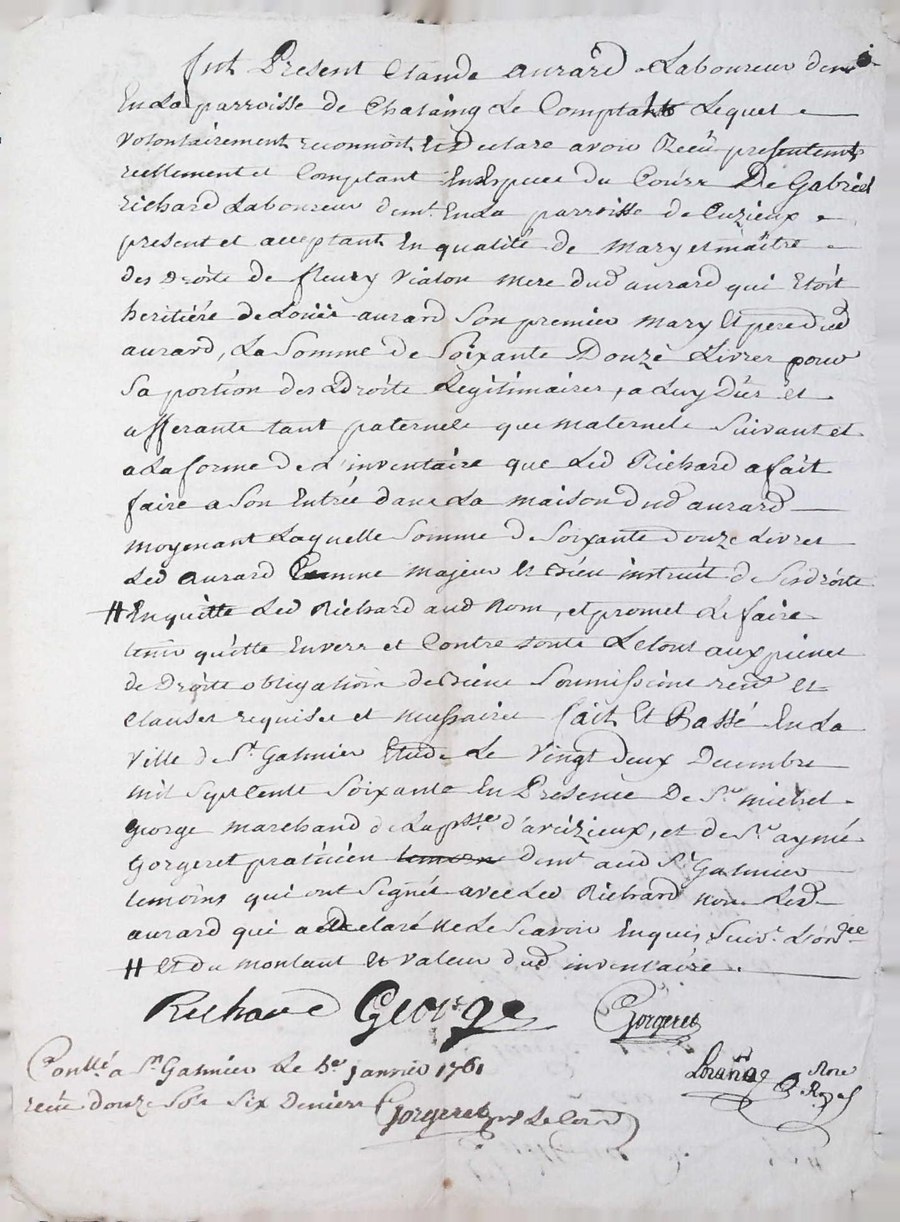 fut Present Claude aurard Laboureur demt
En La parroisse de Chalaing Le Comptal Lequel
Volontairement reconnoit Et Declare avoir Reçu presentemt
reellement et Comptant En Espèces du Cours De Gabriel
Richard Laboureur demt. En La parroisse de Cuzieux
present et acceptant En qualité de mary et maître
des Droits de fleury Vialon mere dud aurard qui Etoit
heritière de Loüis aurard Son premier mary Et pere dud
aurard, La Somme de Soixante Douze Livres pour
Sa portion des Droits Legitimaires, a Luy Dûs et
afferants tant paternels que maternels Suivant et
a La forme de L'inventaire que Led Richard a fait
faire a Son Entrée dans La maison dud aurard
moyenant Laquelle Somme de Soixante douze Livres
Led aurard Comme majeur Et bien instruit de Ses droits
# En quitte Led Richard aud Nom, et promet Le faire
tenir quitte Envers et Contre touts Le tout aux peines
de Droits obligations de biens Soumissions renon Et
Clauses requises et necessaires fait Et Passé En La
Ville de St. Galmier Etude Le Vingt deux Decembre
mil Sept Cents Soixante En Presence De Sr. michel
George marchand de La psse d'avèizieux, et de Sr. aymé
Gorgeret praticien demt aud St. Galmier
temoins qui ont Signés avec Led Richard non Led
aurard qui a Declaré ne Le Scavoir Enquis Suivt. L'ondce
# et du montant Et valeur dud inventaire.
Richard George Gorgeret
Contllé a St Galmier Le 5e janvier 1761
reçu douze Sols Six Deniers Gorgeret